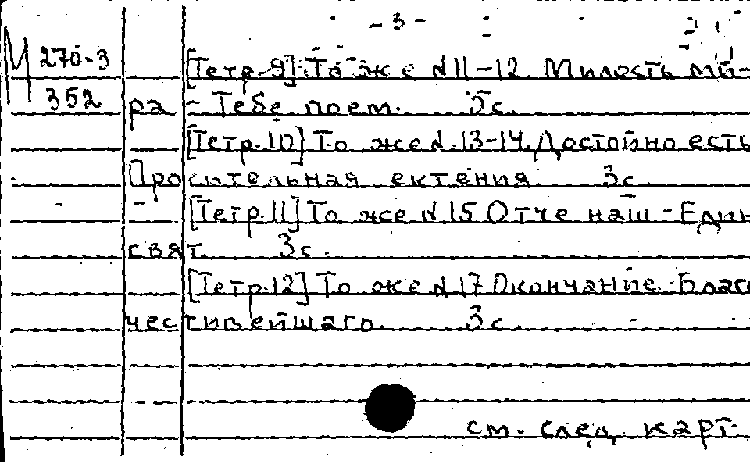 - 3 -
М 270-3 [Тетр.9] То же №11-12. Милость ми-
352 ра - Тебе поем. 5с.
[Тетр.10] То же №.13-14. Достойно есть
Просительная ектения 3с
[Тетр.11] То же №15 Отче наш - Един
свят. 3с.
[Тетр.12] То же №.17 Окончание. Благо
честивейшаго. 3с.
см. след. карт.